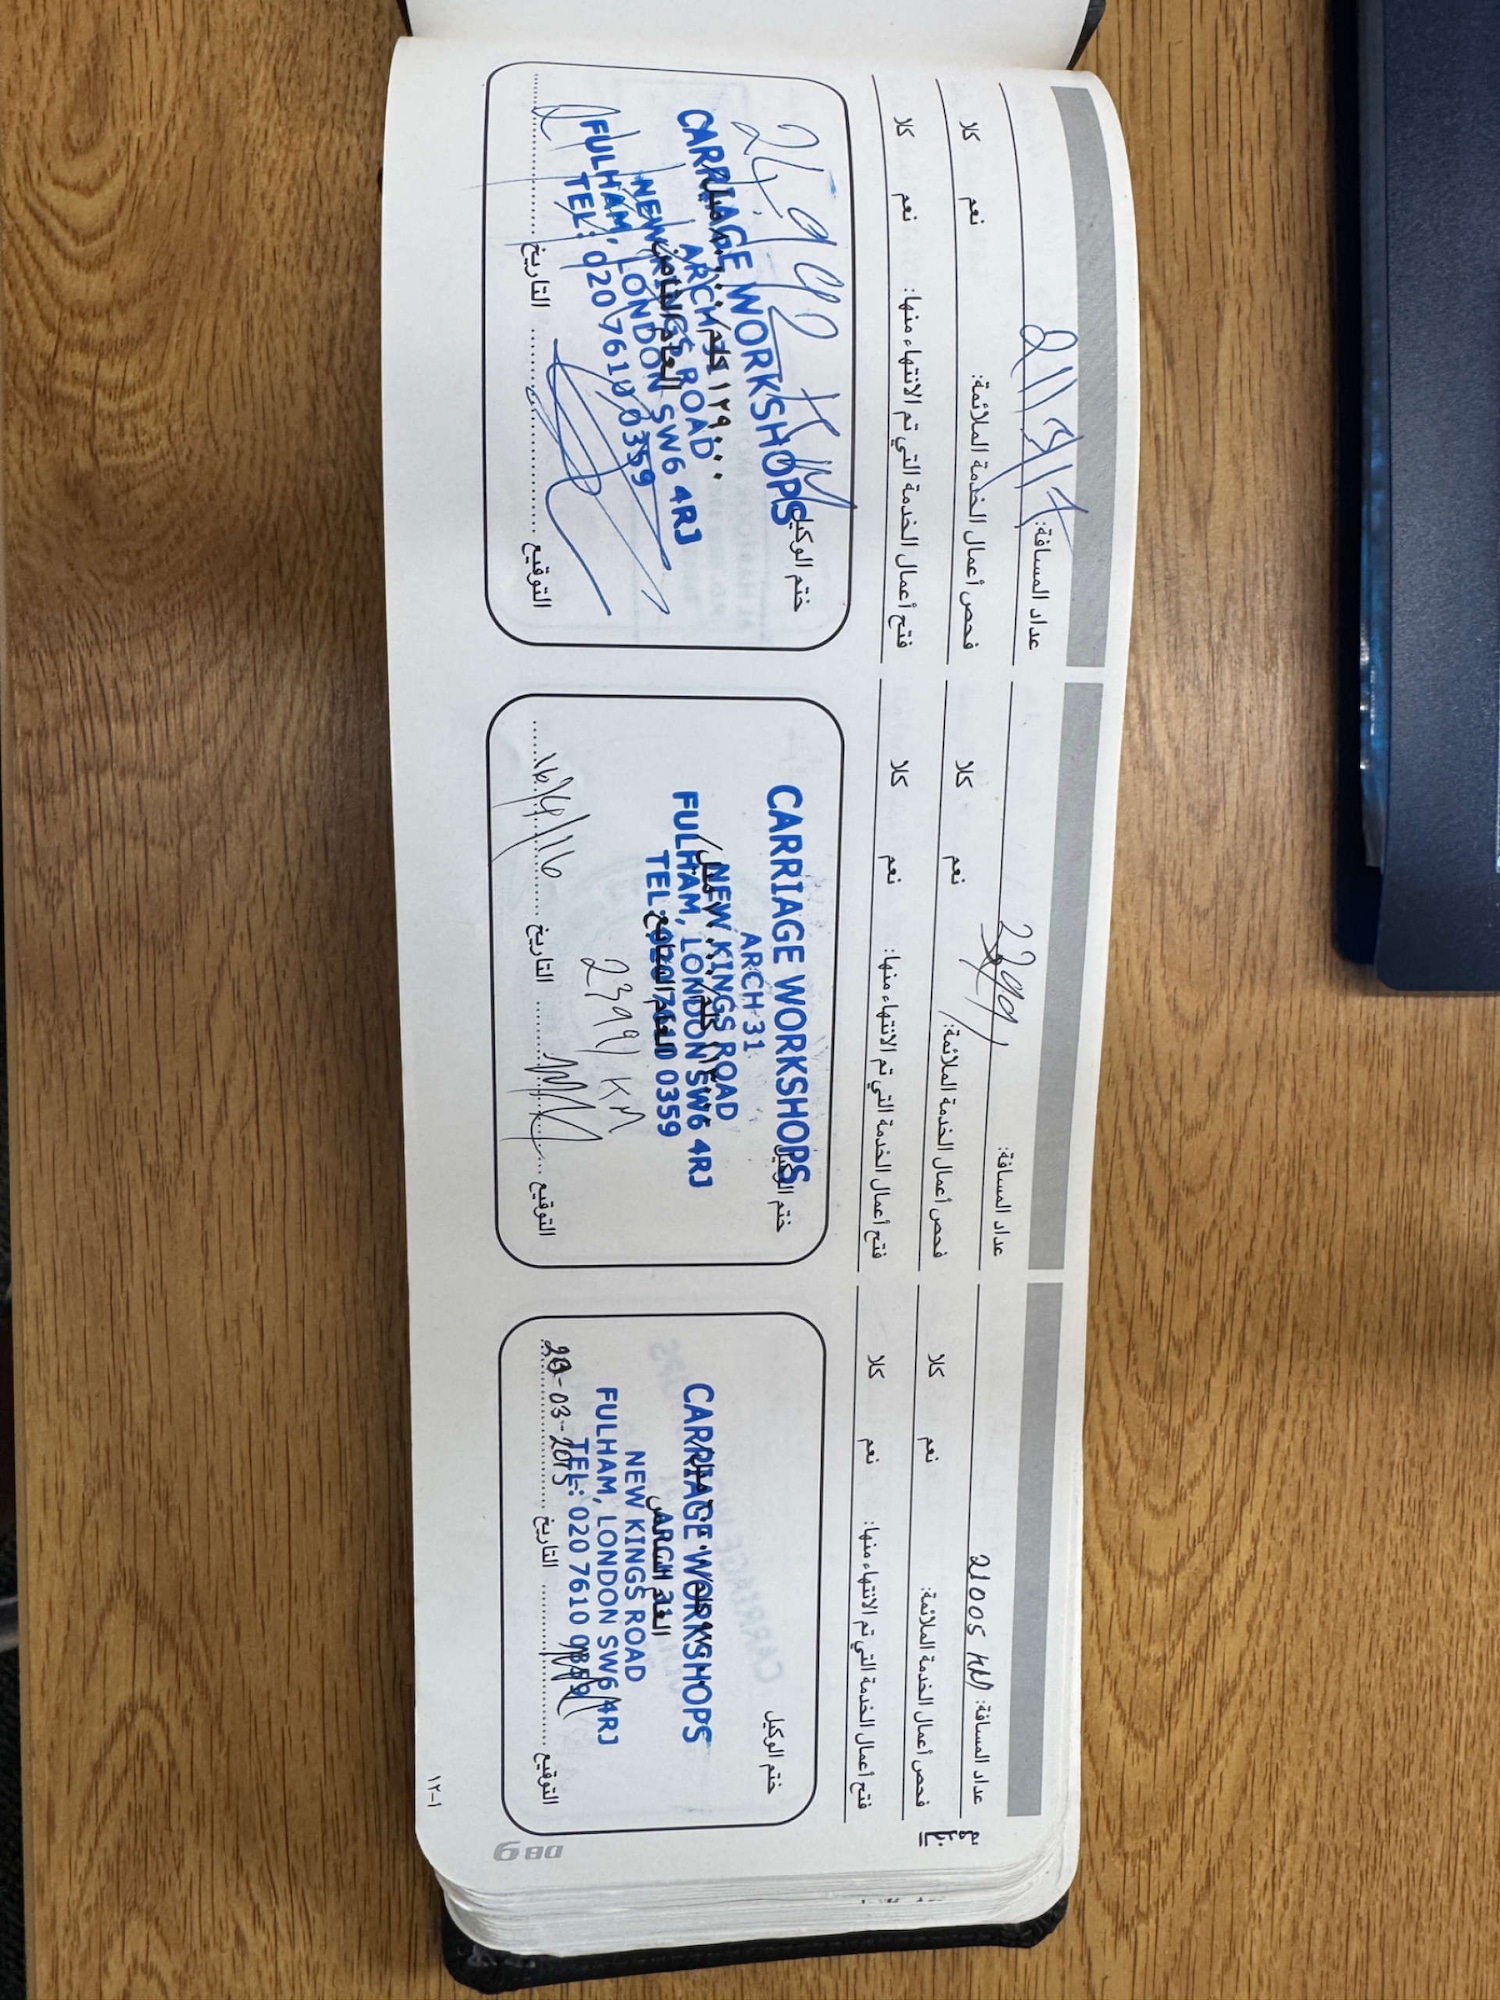 عداد المسافة: 21005 KM
فحص أعمال الخدمة الملائمة: نعم كلا
فتح أعمال الخدمة التي تم الانتهاء منها: نعم كلا
ختم الوكيل
CARRIAGE WORKSHOPS
ARCH 31
العام السادس
NEW KINGS ROAD
FULHAM, LONDON SW6 4RJ
TEL: 020 7610 0359
التوقيع التاريخ 20-03-2015
عداد المسافة:
فحص أعمال الخدمة الملائمة: نعم كلا
فتح أعمال الخدمة التي تم الانتهاء منها: نعم كلا
ختم الوكيل
CARRIAGE WORKSHOPS
ARCH 31
NEW KINGS ROAD
FULHAM, LONDON SW6 4RJ
العام السابع
TEL: 020 7610 0359
23991 KM
التوقيع التاريخ 16/4/16
عداد المسافة:
فحص أعمال الخدمة الملائمة: نعم كلا
فتح أعمال الخدمة التي تم الانتهاء منها: نعم كلا
KM
ختم الوكيل
CARRIAGE WORKSHOPS
ARCH 31
١٢٩٠٠٠ كلم
NEW KINGS ROAD
العام الثامن
FULHAM, LONDON SW6 4RJ
TEL: 020 7610 0359
التوقيع التاريخ
١-١٢
DB9